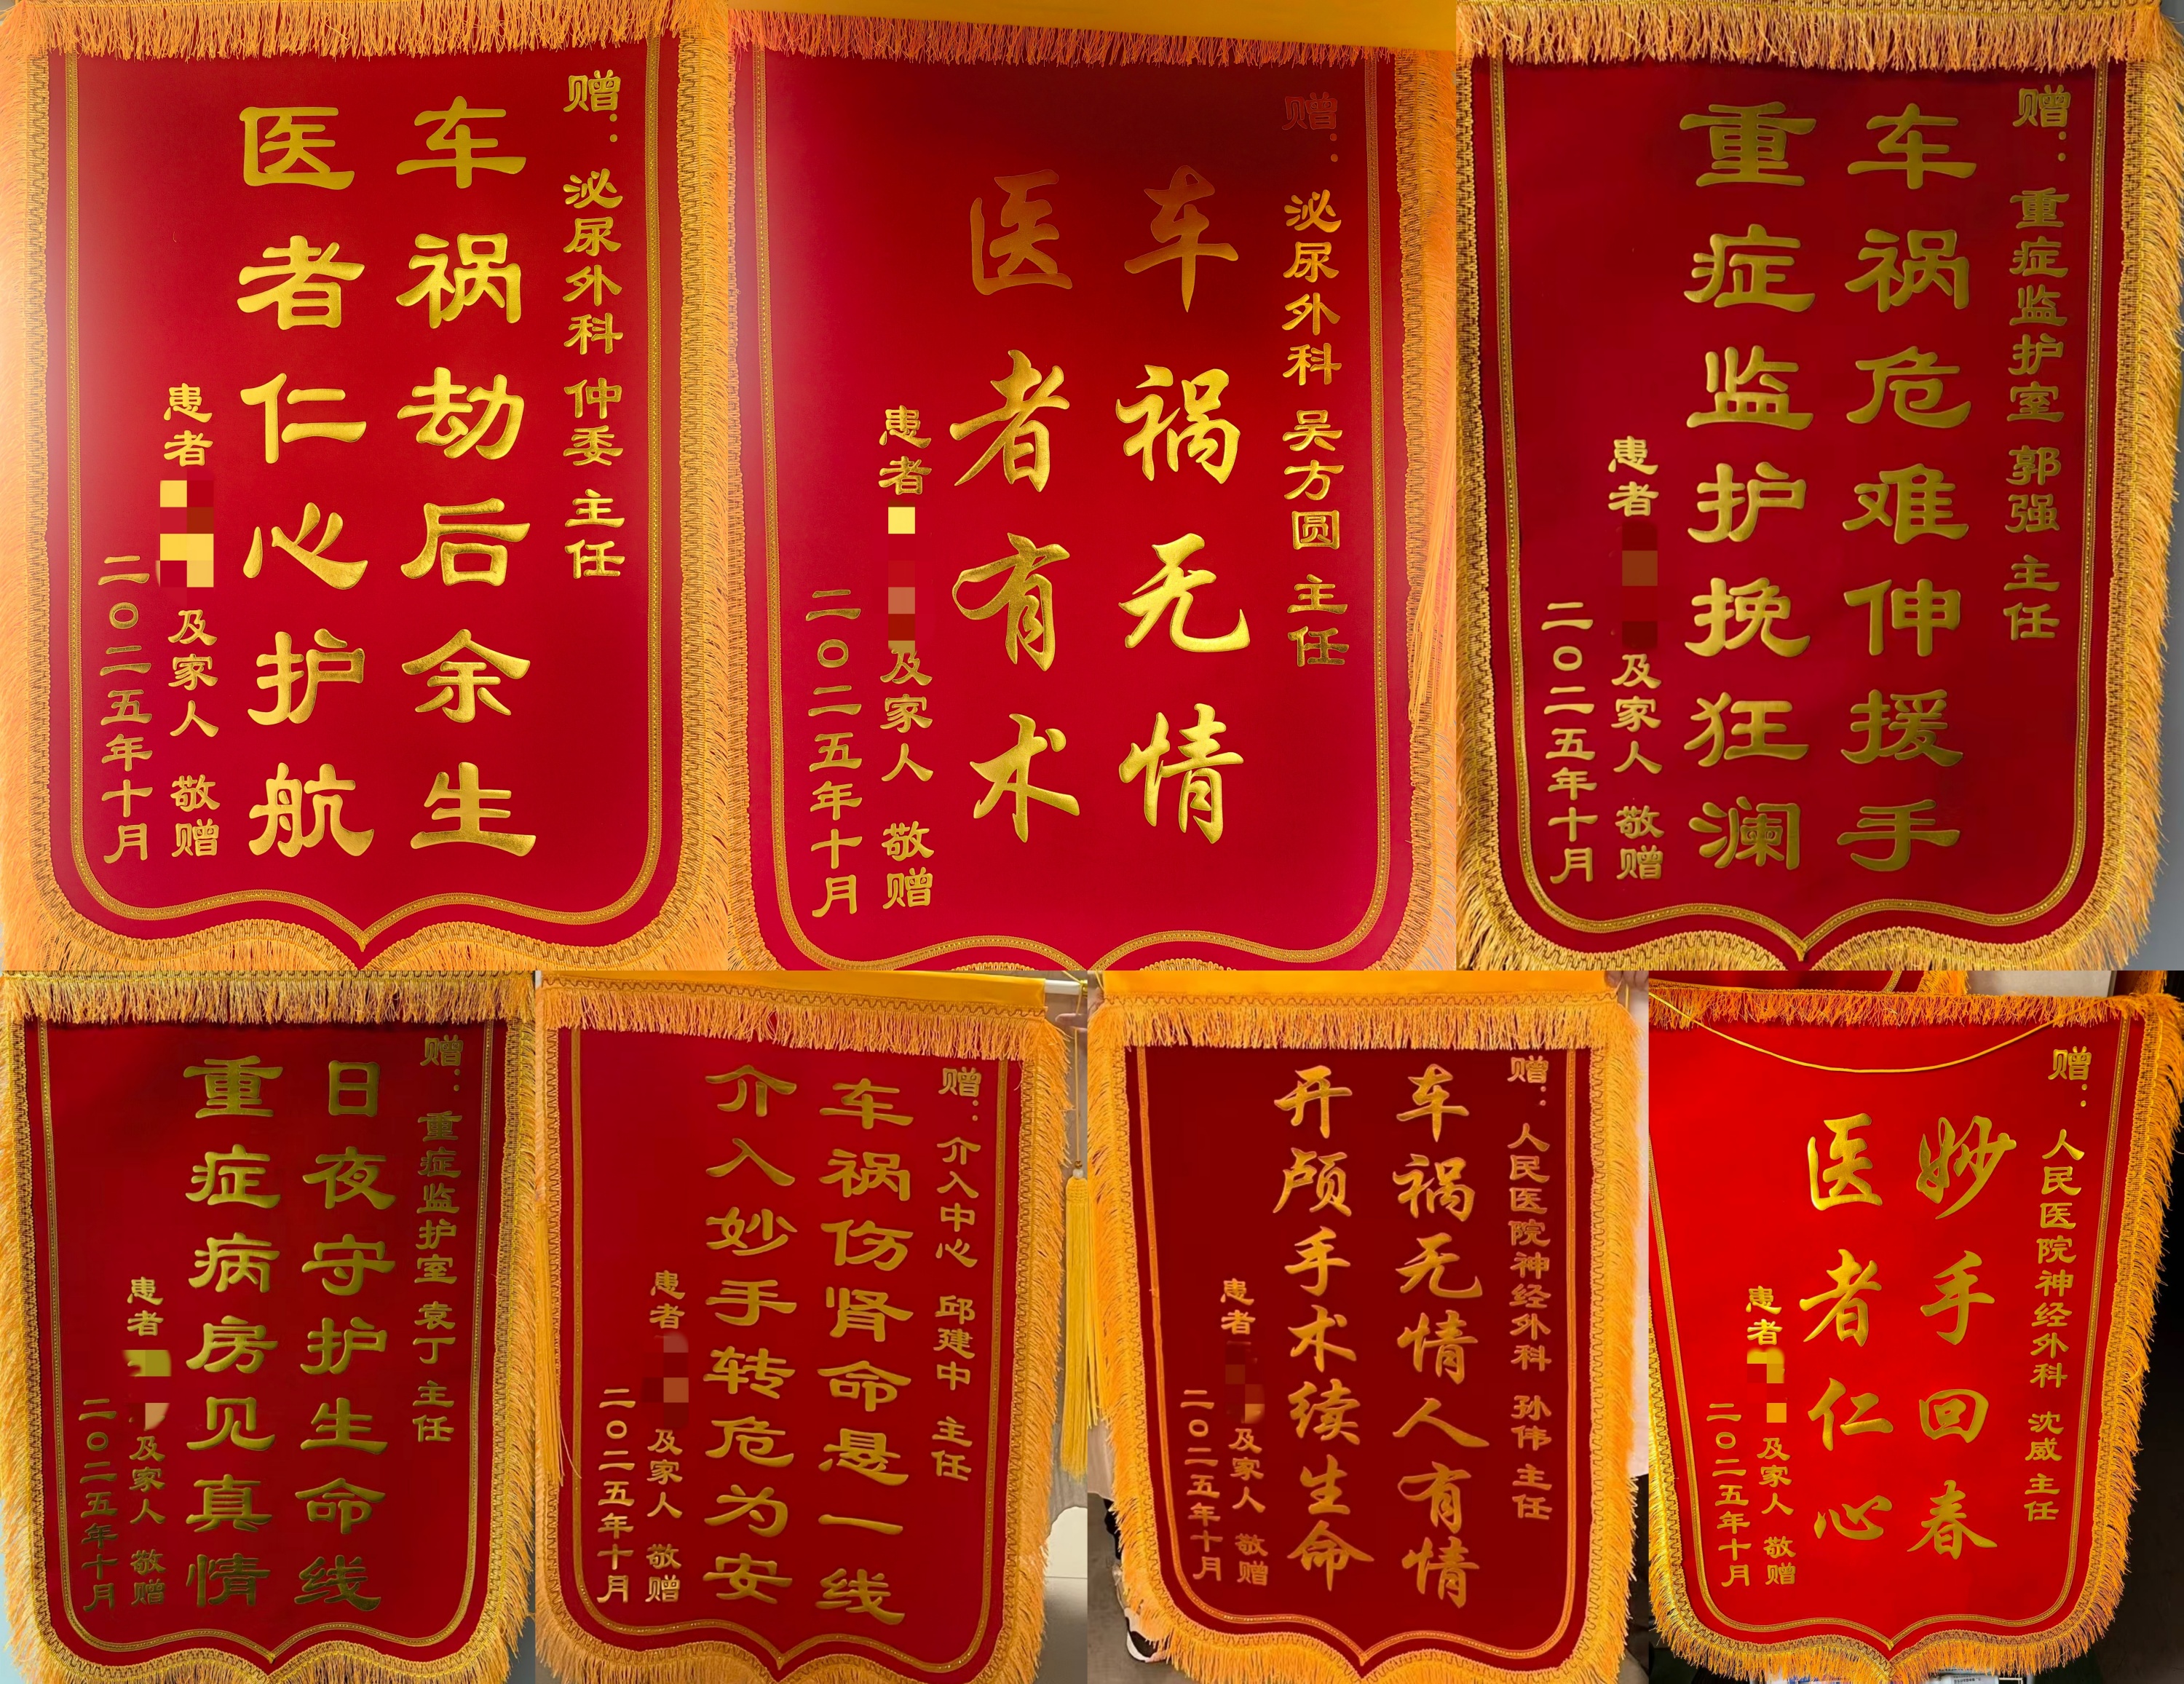 赠：泌尿外科 仲委 主任
车祸劫后余生
医者仁心护航
患者
及家人 敬赠
二〇二五年十月
赠：泌尿外科 吴方圆 主任
车祸无情
医者有术
患者
及家人 敬赠
二〇二五年十月
赠：重症监护室 郭强 主任
车祸危难伸援手
重症监护挽狂澜
患者
及家人 敬赠
二〇二五年十月
赠：重症监护室 袁丁 主任
日夜守护生命线
重症病房见真情
患者
及家人 敬赠
二〇二五年十月
赠：介入中心 邱建中 主任
车祸伤肾命悬一线
介入妙手转危为安
患者
及家人 敬赠
二〇二五年十月
赠：人民医院神经外科 孙伟 主任
车祸无情人有情
开颅手术续生命
患者
及家人 敬赠
二〇二五年十月
赠：人民医院神经外科 沈威 主任
妙手回春
医者仁心
患者
及家人 敬赠
二〇二五年十月